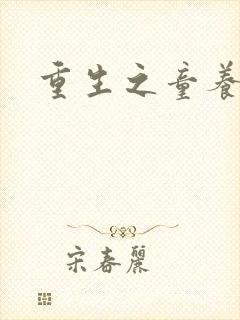 重生之童養
宋春麗